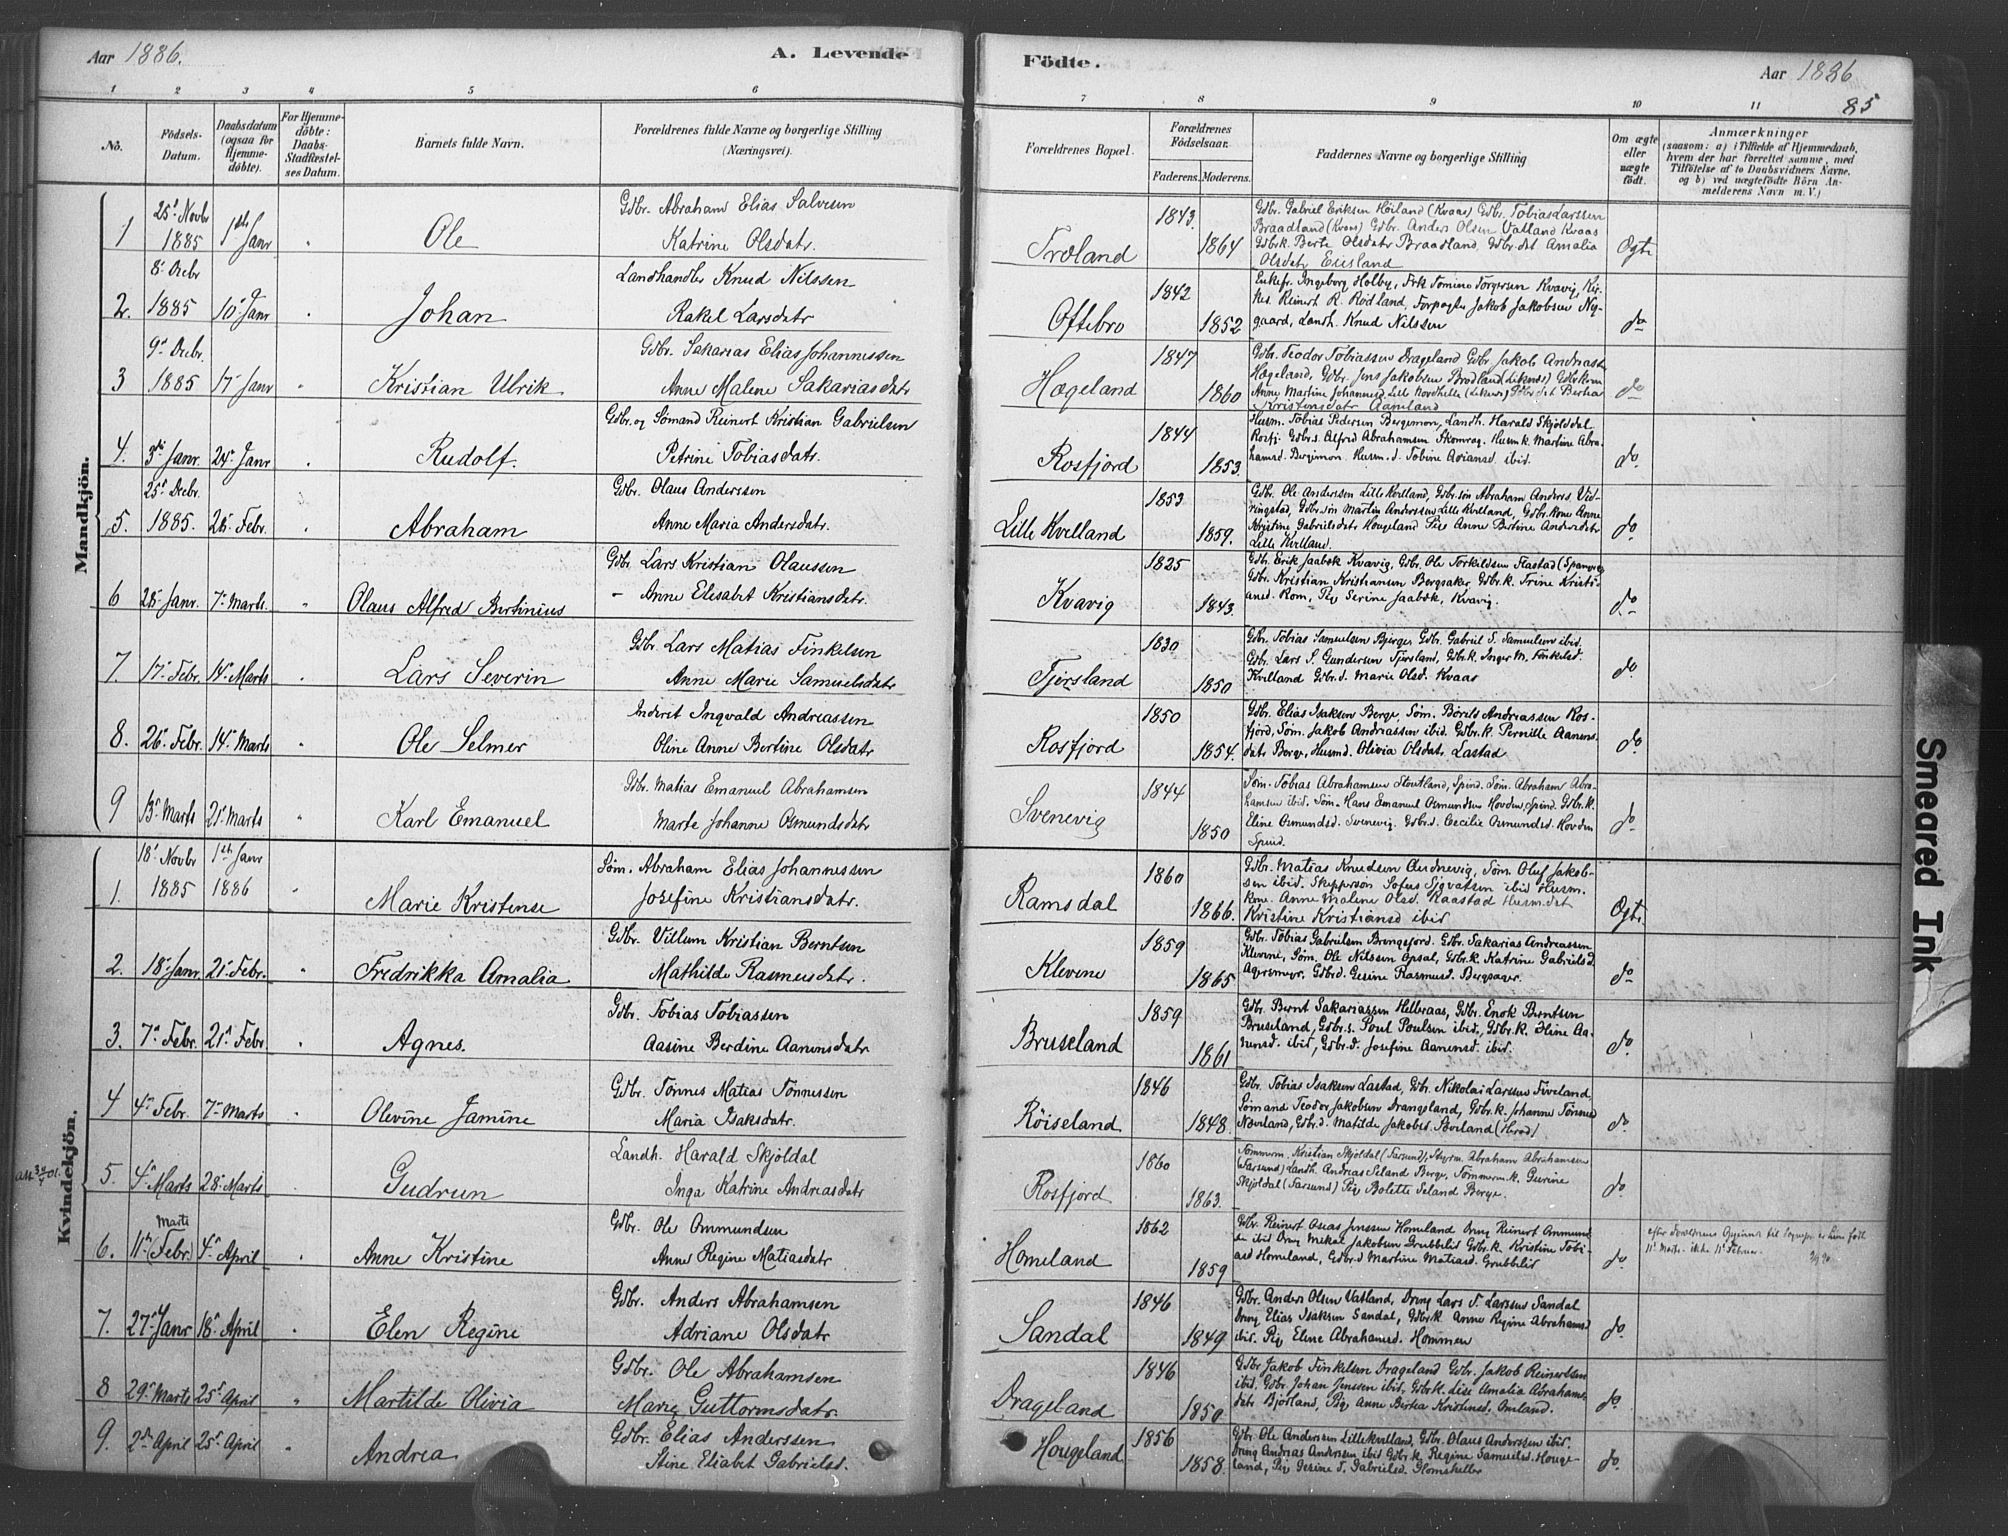 Aar 1886.
A. Levende
Födte.
Aar 1886
85
1 2 3 4 5 6 7 8 9 10 11
No.
Födsels-Datum.
Daabsdatum (ogsaa for Hjemme-döbte).
For Hjemme-döbte: Daabs-Stadfæstel-ses Datum.
Barnets fulde Navn.
Forældrenes fulde Navne og borgerlige Stilling (Næringsvei).
Forældrenes Bopæl.
Forældrenes Födselsaar.
Faderens. Moderens.
Faddernes Navne og borgerlige Stilling
Om ægte eller uægte födt.
Anmærkninger
(saasom: a) i Tilfælde af Hjemmedaab, hvem der har forrettet samme, med Tilföielse af to Daabsvidners Navne, og b) ved uægtefödte Börn Anmelderens Navn m. V.)
Mandkjön.
1 25 Novbr 1885 1ste Janr Ole
Gdbr. Abraham Elias Salvesen
Katrine Olsdatr.
Træland 1843. 1864
Gdbr. Gabriel Eriksen Höiland (Kvaas) Gdbr. Tobias Larssen
Braadland (Kvaas) Gdbr. Anders Olsen Vatland Kvaas
Gdbrk. Berte Olsdatr Braadland, Gdbr.dat Amalia
Olsdatr Eiesland
Ægte
2. 8 Decbr 1885 10 Janr Johan
Landhandler Knud Nilssen
Rakel Larsdatr
Oftebro 1842 1852
Enkefr. Ingeborg Holby, Frk Tomine Torgersen Kvavig, Kir-
kes. Reinert R. Rödland, Forpagter Jakob Jakobsen Ny-
gaard, Landh. Knud Nilssen
do
3 9 Decbr. 1885 17 Janr Kristian Ulrik
Gdbr. Sakarias Elias Johannessen
Anne Malene Sakariasdatr
Hægeland 1847 1860
Gdbr. Teodor Tobiassen Drageland Gdbr Jakob Andreass
Hægeland, Gdbr. Jens Jakobsen Brodland (Liknes) Gdbrkone
Kristensdatr Aamland
do
4. 3die Janr. 24 Janr Rudolf.
Gdbr. og Sömand Reinert Kristian Gabrielsen
Petrine Tobiasdatr.
Rosfjord 1844 1853.
Husm. Tobias Pedersen Bergsmon, Landh. Harald Skjöldal
Rosfj. Gdbr.s. Alfred Abrahamsen Skomrag. Husm.k. Martine Abra-
hamsd. Bergsmon. Husm.d. Tobine Ariansd. ibid.
do.
5. 25 Decbr. 1885. 28 Febr. Abraham
Gdbr. Olaus Anderssen
Anne Maria Andersdatr.
Lille Kvelland 1853 1859.
Gdbr. Ole Anderssen Lille Kvelland, Gdbr.sön Abraham Anders. Vid-
ringstad, Gdbr.sön Martin Anderssen Lille Kvelland, Gdbr.kone Anne
Kristine Gabrielsdatr Hougeland Pige Anne Bertine Andersdatr
Lille Kvelland.
do.
6 28 Janr. 7 Marts. Olaus Alfred Bertinius
Gdbr. Lars Kristian Olaussen
– Anne Elisabet Kristiansdatr.
Kvavig 1825 1843.
Gdbr. Erik Jaabæk Kvavig, Gdbr. Ole Torkildsen Flastad (Spangrei
Gdbr. Kristian Kristiansen Bergsaker, Gdbr.k. Trine Kristi-
ansd. Rom, Pige Serine Jaabæk, Kvavig.
do.
7. 17 Febr. 14 Marts Lars Severin
Gdbr. Lars Matias Finkelsen
Anne Marie Samuelsdatr
Tjersland 1830 1850
Gdbr. Tobias Samuelsen Bjerge Gdbr. Gabriel S. Samuelsen ibid.
Gdbr. Lars S. Gundersen Tjersland, Gdbr.k. Inger M. Finkelsd.
Kvelland Gdbr.d. Marie Olsd. Kvaas
do
8. 26 Febr. 14 Marts Ole Selmer
Inderst Ingvald Andreassen
Oline Anne Bertine Olsdatr
Rosfjord 1850 1854.
Gdbr. Elias Isaksen Berge, Söm. Börils Andreassen Ros-
fjord, Söm. Jakob Andreassen ibid. Gdbr.k. Pernille Aanens-
datr Berge, Husmd. Olivia Olsdatr. Lastad
do
9 13 Marts 21 Marts Karl Emanuel
Gdbr. Matias Emanuel Abrahamsen
Marte Johanne Osmundsdatr
Svenevig 1844 1850
Söm. Tobias Abrahamsen Stoutland, Spind. Söm. Abraham Abra-
hamsen ibid. Söm. Hans Emanuel Osmundsen Hovden, Spind. Gdbr.k.
Eline Osmundsd. Svenevig. Gdbr.d. Cecilie Osmundsd. Hovden
Spind.
do.
Kvindekjön.
1. 18 Novbr 1885 1ste Janr 1886 Marie Kristense
Söm. Abraham Elias Johannessen
Josefine Kristiansdatr.
Ramsdal 1860 1866.
Gdbr. Matias Knudsen Andnevig, Söm. Oluf Jakob-
sen ibid. Skippersön Sofus Sigvatsen ibid Husm.
kone. Anne Malene Olsd. Raastad Husm.dat
Kristine Kristiansd ibid
Ægte
2. 18 Janr. 21 Febr. Fredrikka Amalia
Gdbr. Villum Kristian Berntsen
Mathilde Rasmusdatr.
Klevene 1859 1865
Gdbr. Tobias Gabrielsen Bringsjord. Gdbr. Sakarias Andreassen
Klevene, Söm. Ole Nilssen Opsal, Gdbr.k. Katrine Gabrielsd.
Agersmyr, Gdbrd. Gesine Rasmusd. Bergsager.
do
3. 7 Febr. 21 Febr Agnes.
Gdbr. Tobias Tobiassen
Aasine Berdine Aanensdatr
Bruseland 1859 1861
Gdbr. Bernt Sakariassen Helvraas, Gdbr. Enok Berntsen
Bruseland, Gdbr.s. Poul Poulsen ibid., Gdbr.k. Eline Aa-
nensd. ibid, Gdbr.d. Josefine Aanensd. ibid.
do.
4 4 Febr. 7 Marts Olevine Jamine
Gdbr. Tönnes Matias Tönnessen
Maria Isaksdatr.
Röiseland 1846 1848.
Gdbr. Tobias Isaksen Lastad, Gdbr. Nikolai Larsen Fiveland,
Sömand Teodor Jakobsen Drangeland, Gdbr.k. Johanne Tönnes
Næveland, Gdbr.d. Matilde Jakobsd. Röviland (Herad)
do.
5. 4 Marts 28 Marts Gudrun
Landh. Harald Skjöldal
Inga Katrine Andreasdatr
Rosfjord 1860 1863.
Tömmerm. Kristian Skjöldal (Farsund), Styrm. Abraham Abrahamsen
(Farsund) Landh. Andreas Seland Berge, Tömmerm.k. Gurine
Skjöldal (Farsund) Pige Bolette Seland Berge.
do
6. 11te Marts (Febr.) 4 April Anne Kristine
Gdbr. Ole Ommundsen
Anne Regine Matiasdatr
Homeland 1862 1859
Gdbr. Reinert Osias Jenssen Homeland Dreng Reinert Ommund
sen ibid Dreng Mekal Jakobsen Grubbelid Gdbr.k. Kristine Tobi-
asd Homeland, Gdbr.d Martine Matiasd. Grubbelid
do.
11 Marts ikke 11 Februar.
7. 27 Janr 18 April Elen Regine
Gdbr. Anders Abrahamsen
Adriane Olsdatr
Sandal 1846 1849
Gdbr. Anders Olsen Vatland, Dreng Lars T. Larssen Sandal
Dreng Elias Isaksen Sandal, Gdbr.k. Anne Regine Abrahamsd
ibid. Pige Eline Abrahamsd. Hommen
do.
8 29 Marts 25 April Martilde Olivia
Gdbr. Ole Abrahamsen
Marie Guttormsdatr.
Drageland 1846 1850
Gdbr Jakob Finkelsen Drageland Gdbr. Jakob Reinertsen
ibid. Gdbr. Johan Jenssen ibid, Gdbr.k. Lise Amalia Abrahams-
datr Björland, Pige Anne Birtea Kristensd. Omland.
do.
9. 2den April 25 April Andrea
Gdbr. Elias Anderssen
Stine Elisabet Gabrielsd.
Hougeland 1856 1858.
Gdbr. Ole Anderssen Lillekvelland, Gdbr. Olaus Anderssen ibid.
Dreng Andreas Anderssen ibid Gdbr.k. Regine Samuelsd. Houge
land, Pige Gesine T. Gabrielsd. Glomseller
do.
Smeared Ink